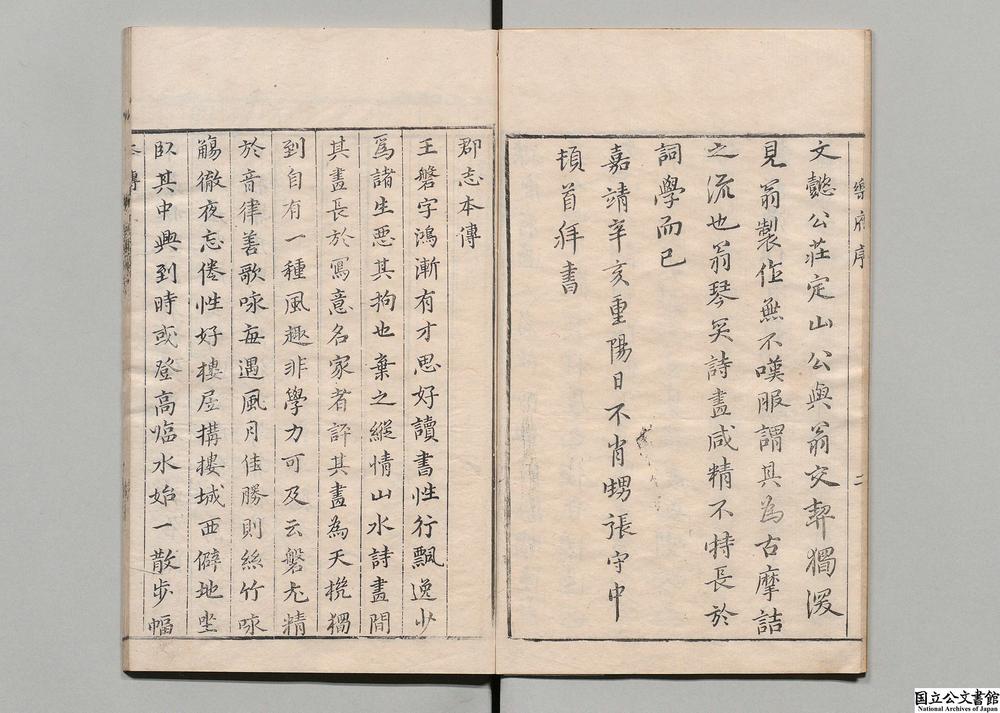 樂府序
二
文懿公莊定山公與翁交契獨深
見翁製作無不嘆服謂其為古摩詰
之流也翁琴奕詩畫咸精不特長於
詞學而已
嘉靖辛亥重陽日不肖甥張守中
頓首拜書
郡志本傳
王磐字鴻漸有才思好讀書性行飄逸少
爲諸生惡其拘也棄之縱情山水詩畫間
其畫長於寫意名家者評其畫為天機獨
到自有一種風趣非學力可及云磐尤精
於音律善歌咏每遇風月佳勝則絲竹咏
觴徹夜忘倦性好樓居搆樓城西僻地坐
臥其中興到時或登高臨水始一散步幅
本傳
国立公文書館
National Archives of Japan